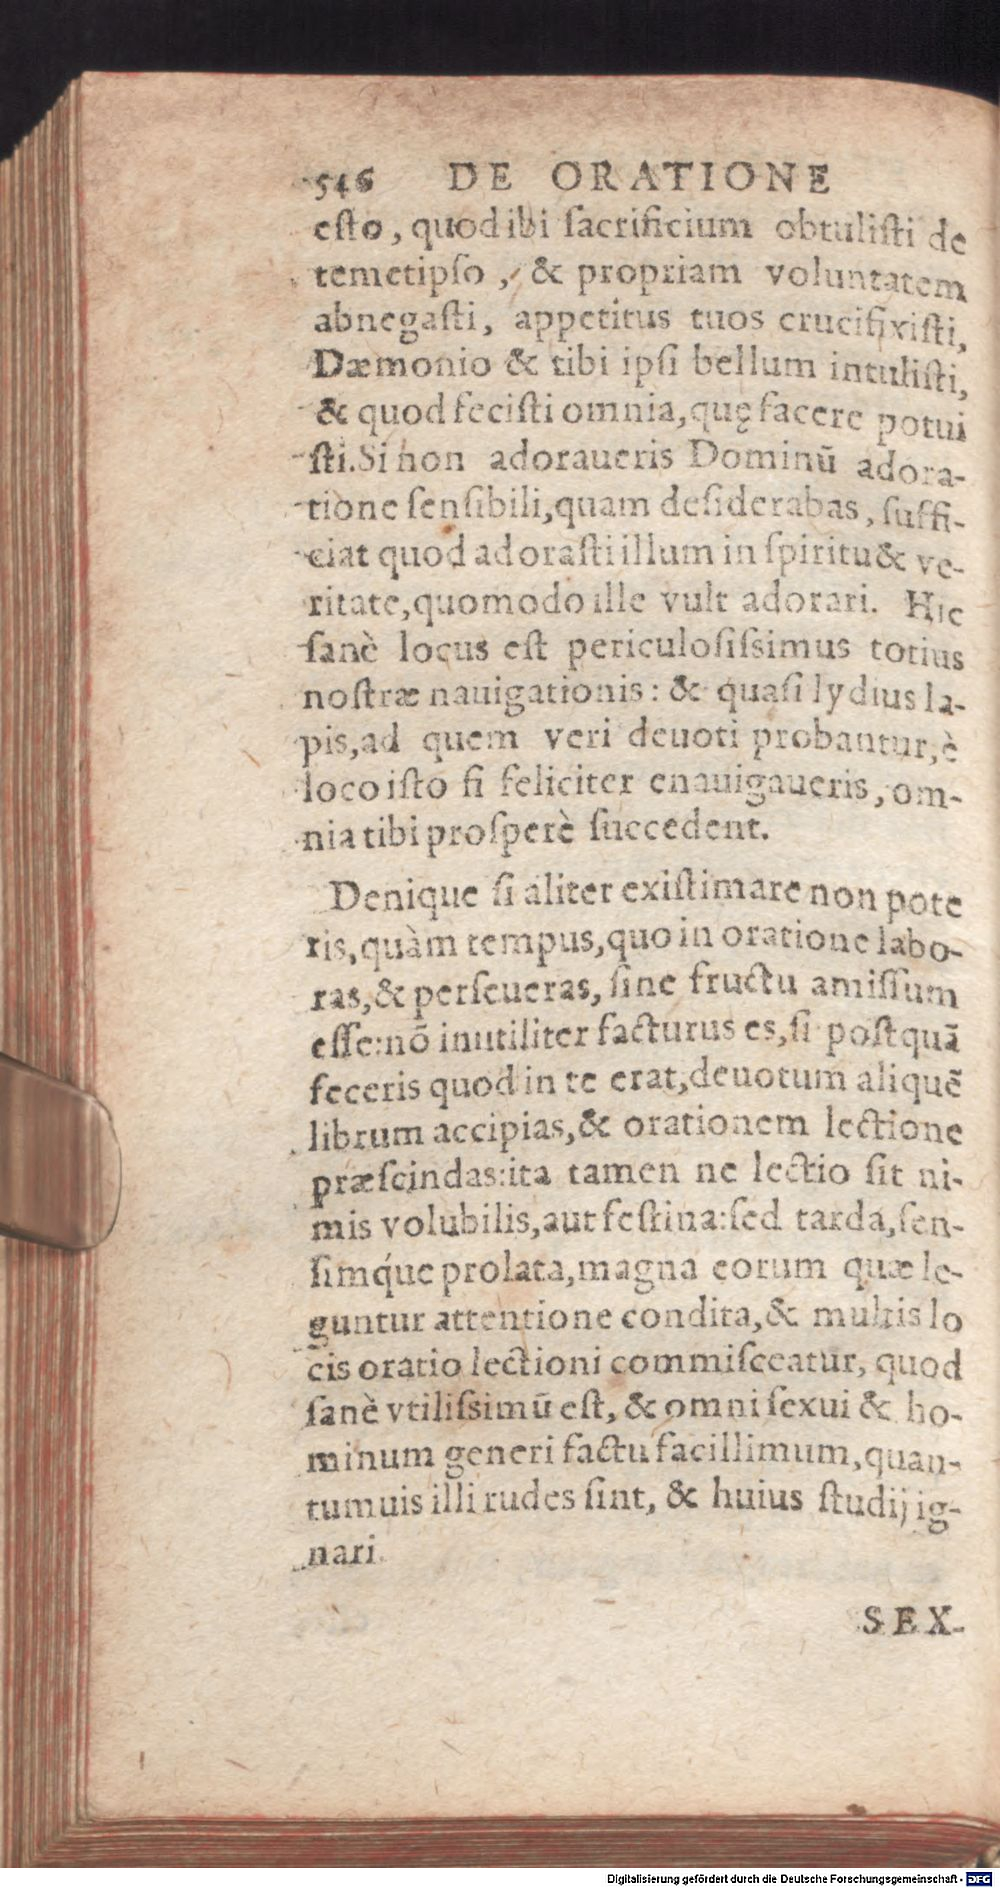 546 DE ORATIONE
esto, quod ibi sacrificium obtulisti de
temetipso, & propriam voluntatem
abnegasti, appetitus tuos crucifixisti,
Dæmonio & tibi ipsi bellum intulisti,
& quod fecisti omnia, quę facere potui
sti. Si non adoraueris Dominū adora-
tione sensibili, quam desiderabas, suffi-
ciat quod adorasti illum in spiritu & ve-
ritate, quomodo ille vult adorari. Hic
sanè locus est periculosissimus totius
nostræ nauigationis: & quasi lydius la-
pis, ad quem veri deuoti probantur, è
loco isto si feliciter enauigaueris, om-
nia tibi prosperè succedent.
Denique si aliter existimare non pote
ris, quàm tempus, quo in oratione labo-
ras, & perseueras, sine fructu amissum
esse: nō inutiliter facturus es, si postquā
feceris quod in te erat, deuotum aliquē
librum accipias, & orationem lectione
præscindas: ita tamen ne lectio sit ni-
mis volubilis, aut festina: sed tarda, sen-
simq́ue prolata, magna eorum quæ le-
guntur attentione condita, & multis lo
cis oratio lectioni commisceatur, quod
sanè vtilissimū est, & omni sexui & ho-
minum generi factu facillimum, quan-
tumuis illi rudes sint, & huius studij ig-
nari.
SEX-
Digitalisierung gefördert durch die Deutsche Forschungsgemeinschaft - DFG